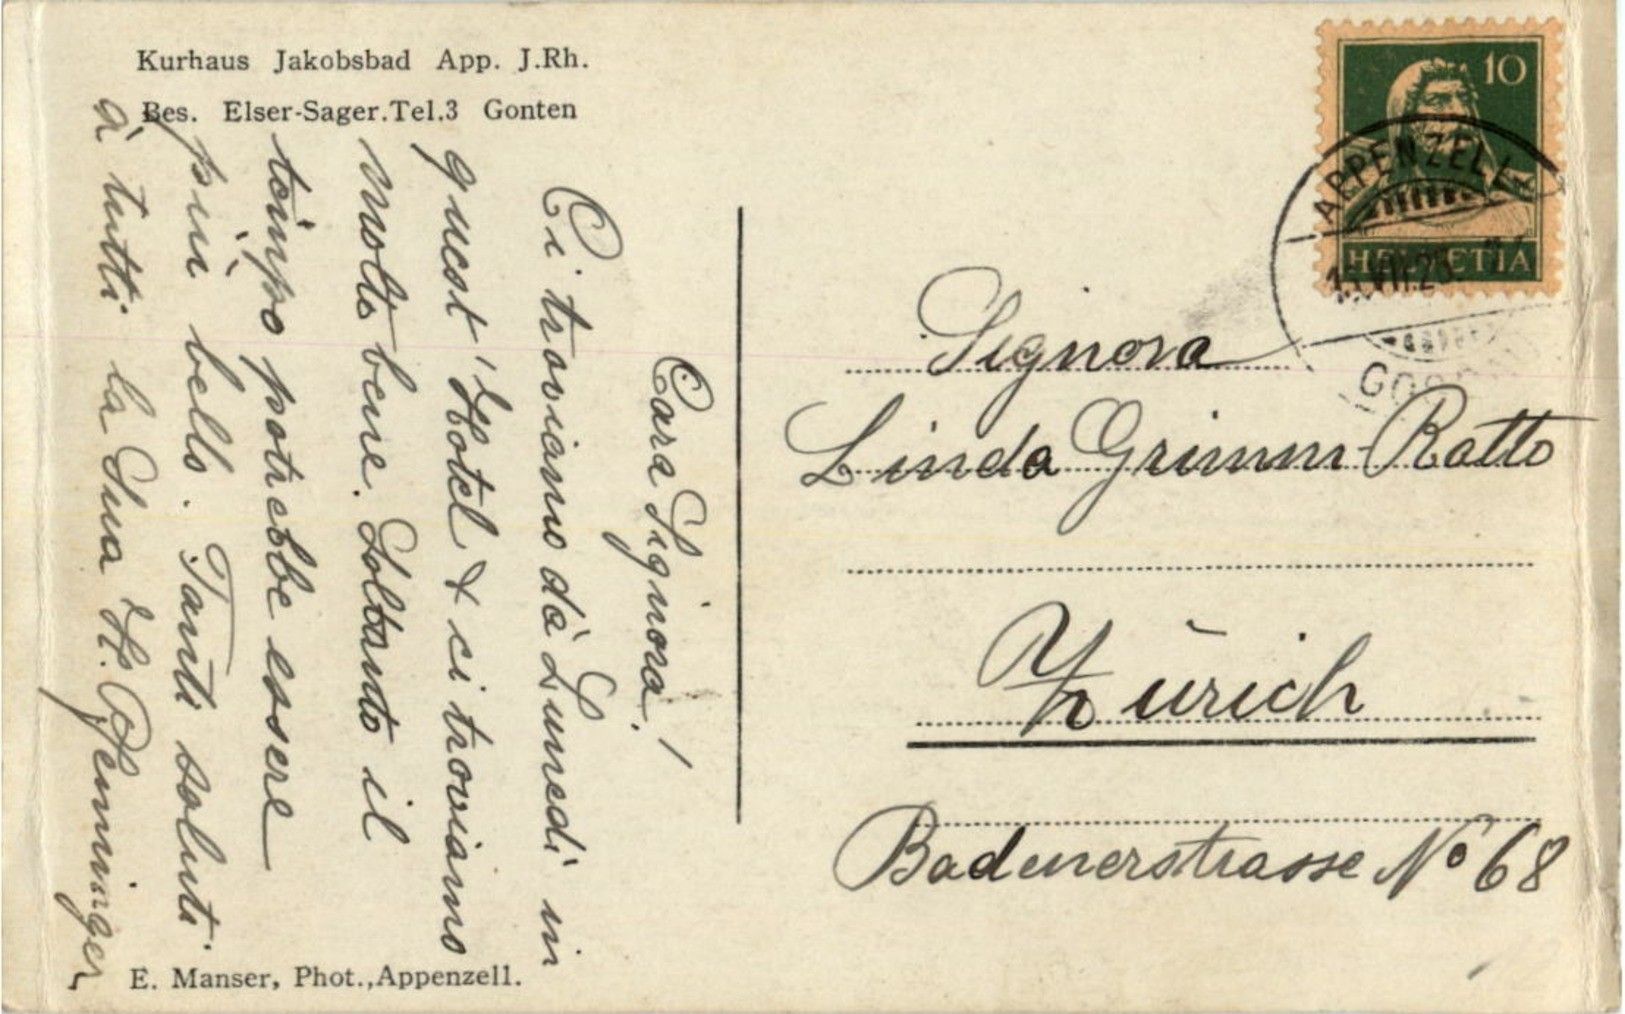 Kurhaus Jakobsbad App. J.Rh.
Bes. Elser-Sager.Tel.3 Gonten
Cara Signora!
Ci troviamo dà Lunedi in
quest' Hotel & ci troviamo
molto bene. Soltanto il
tempo potrebbe essere
più bello. Tanti saluti
à tutti la Sua H. Pfenninger
E. Manser, Phot.,Appenzell.
10
HELVETIA
APPENZELL
VII.25
Signora
Linda Grimm-Ratto
Zürich
Badenerstrasse No 68